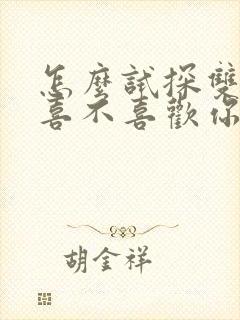 怎麼試探雙
喜不喜歡你
胡金祥